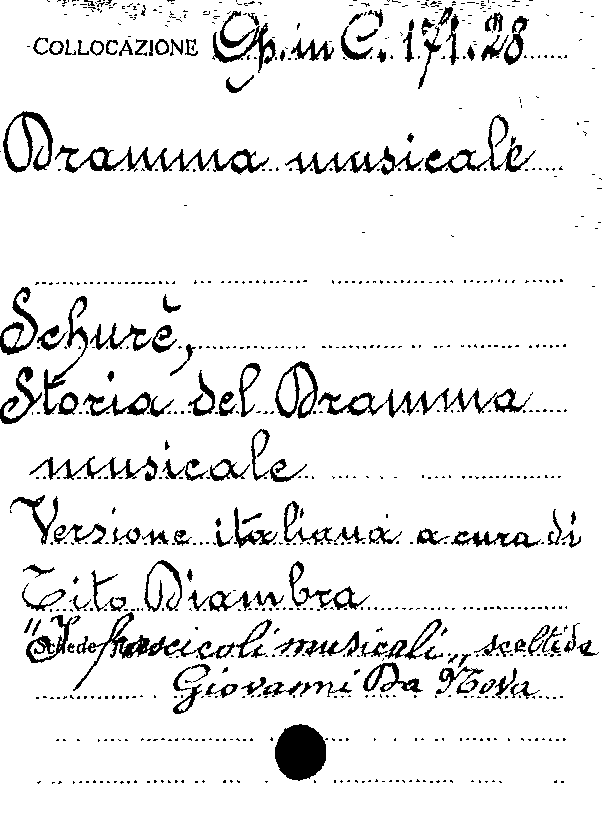 COLLOCAZIONE Op. in C. 171.28
Dramma musicale
Schurè,
Storia del Dramma
musicale
Versione italiana a cura di
Tito Diambra
"I fascicoli musicali" scelti da
Giovanni Da Nova